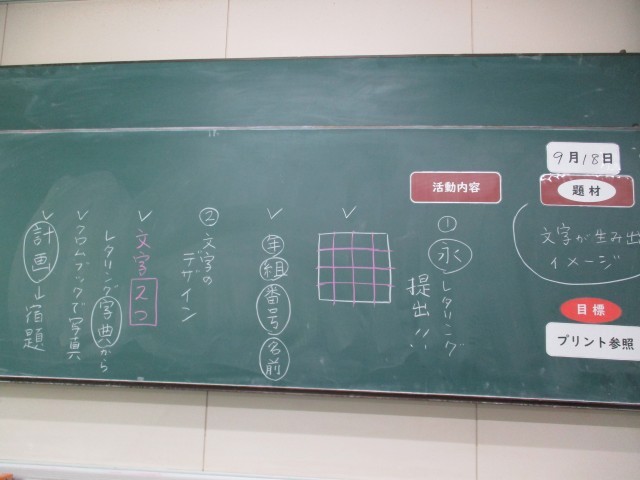 9月18日
題材
文字が生み出
イメージ
目標
プリント参照
活動内容
① 永 レタリング
提出!!
年 組 番号 名前
② 文字の
デザイン
文字2つ
レタリング字典から
クロムブックで写真
計画は宿題